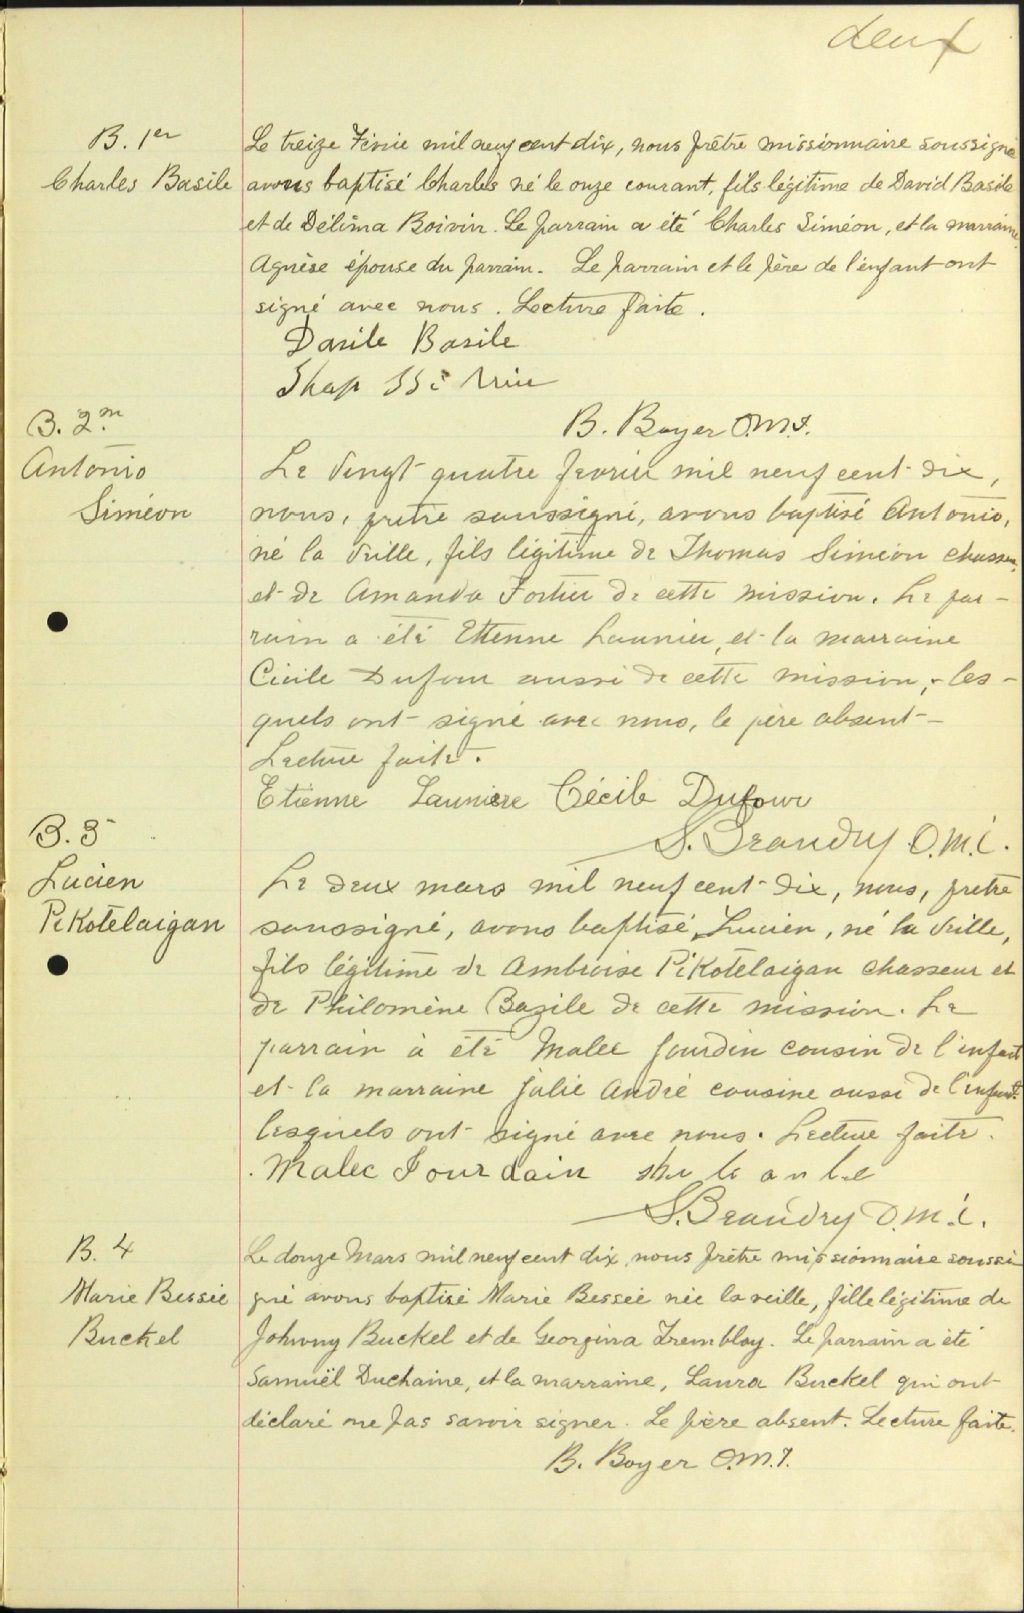 deux
B. 1er
Charles Basile
Le treize Février mil neuf cent dix, nous prêtre missionnaire soussigné
avons baptisé Charles né le onze courant, fils légitime de David Basile
et de Délima Boivin. Le parrain a été Charles Siméon, et la marraine
Agnèse épouse du parrain. Le parrain et le père de l'enfant ont
signé avec nous. Lecture faite.
Basile
B. Boyer O.M.I.
B. 2m.
Antonio
Siméon
Le vingt-quatre fevrier mil neuf cent-dix,
nous, pretre soussigné, avons baptisé Antonio,
né la veille, fils légitime de Thomas Siméon chasseur,
et de Amanda Fortier de cette mission. Le par-
rain a été Etienne Launier, et la marraine
Cécile Dufour aussi de cette mission, les-
quels ont signé avec nous, le père absent-
Lecture faite.
Etienne Launière Cécile Dufour
S. Beaudry O.M.I.
B. 3
Lucien
Pikotelaigan
Le deux mars mil neuf cent-dix, nous, pretre
soussigné, avons baptisé, Lucien, né la veille,
fils légitime de Ambroise Pikotelaigan chasseur et
de Philomène Bazile de cette mission. Le
parrain à été Malec Jourdin cousin de l'enfant
et la marraine Julie André cousine aussi de l'enfant.
lesquels ont signé avec nous. Lecture faite.
Malec Jourdain
S. Beaudry O.M.I.
B. 4
Marie Bessée
Buckel
Le douze Mars mil neuf cent dix, nous prêtre missionnaire soussi
gné avons baptisé Marie Bessée née la veille, fille légitime de
Johnny Buckel et de Georgina Tremblay. Le parrain a été
Samuël Duchaine, et la marraine, Laura Buckel qui ont
déclaré ne pas savoir signer. Le père absent. Lecture faite.
B. Boyer O.M.I.